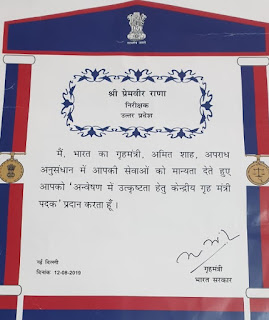 श्री प्रेमवीर राणा
निरीक्षक
उत्तर प्रदेश
मैं, भारत का गृहमंत्री, अमित शाह, अपराध
अनुसंधान में आपकी सेवाओं को मान्यता देते हुए
आपको 'अन्वेषण में उत्कृष्टता हेतु केन्द्रीय गृह मंत्री
पदक' प्रदान करता हूँ।
नई दिल्ली
दिनांक: 12-08-2019
गृहमंत्री
भारत सरकार